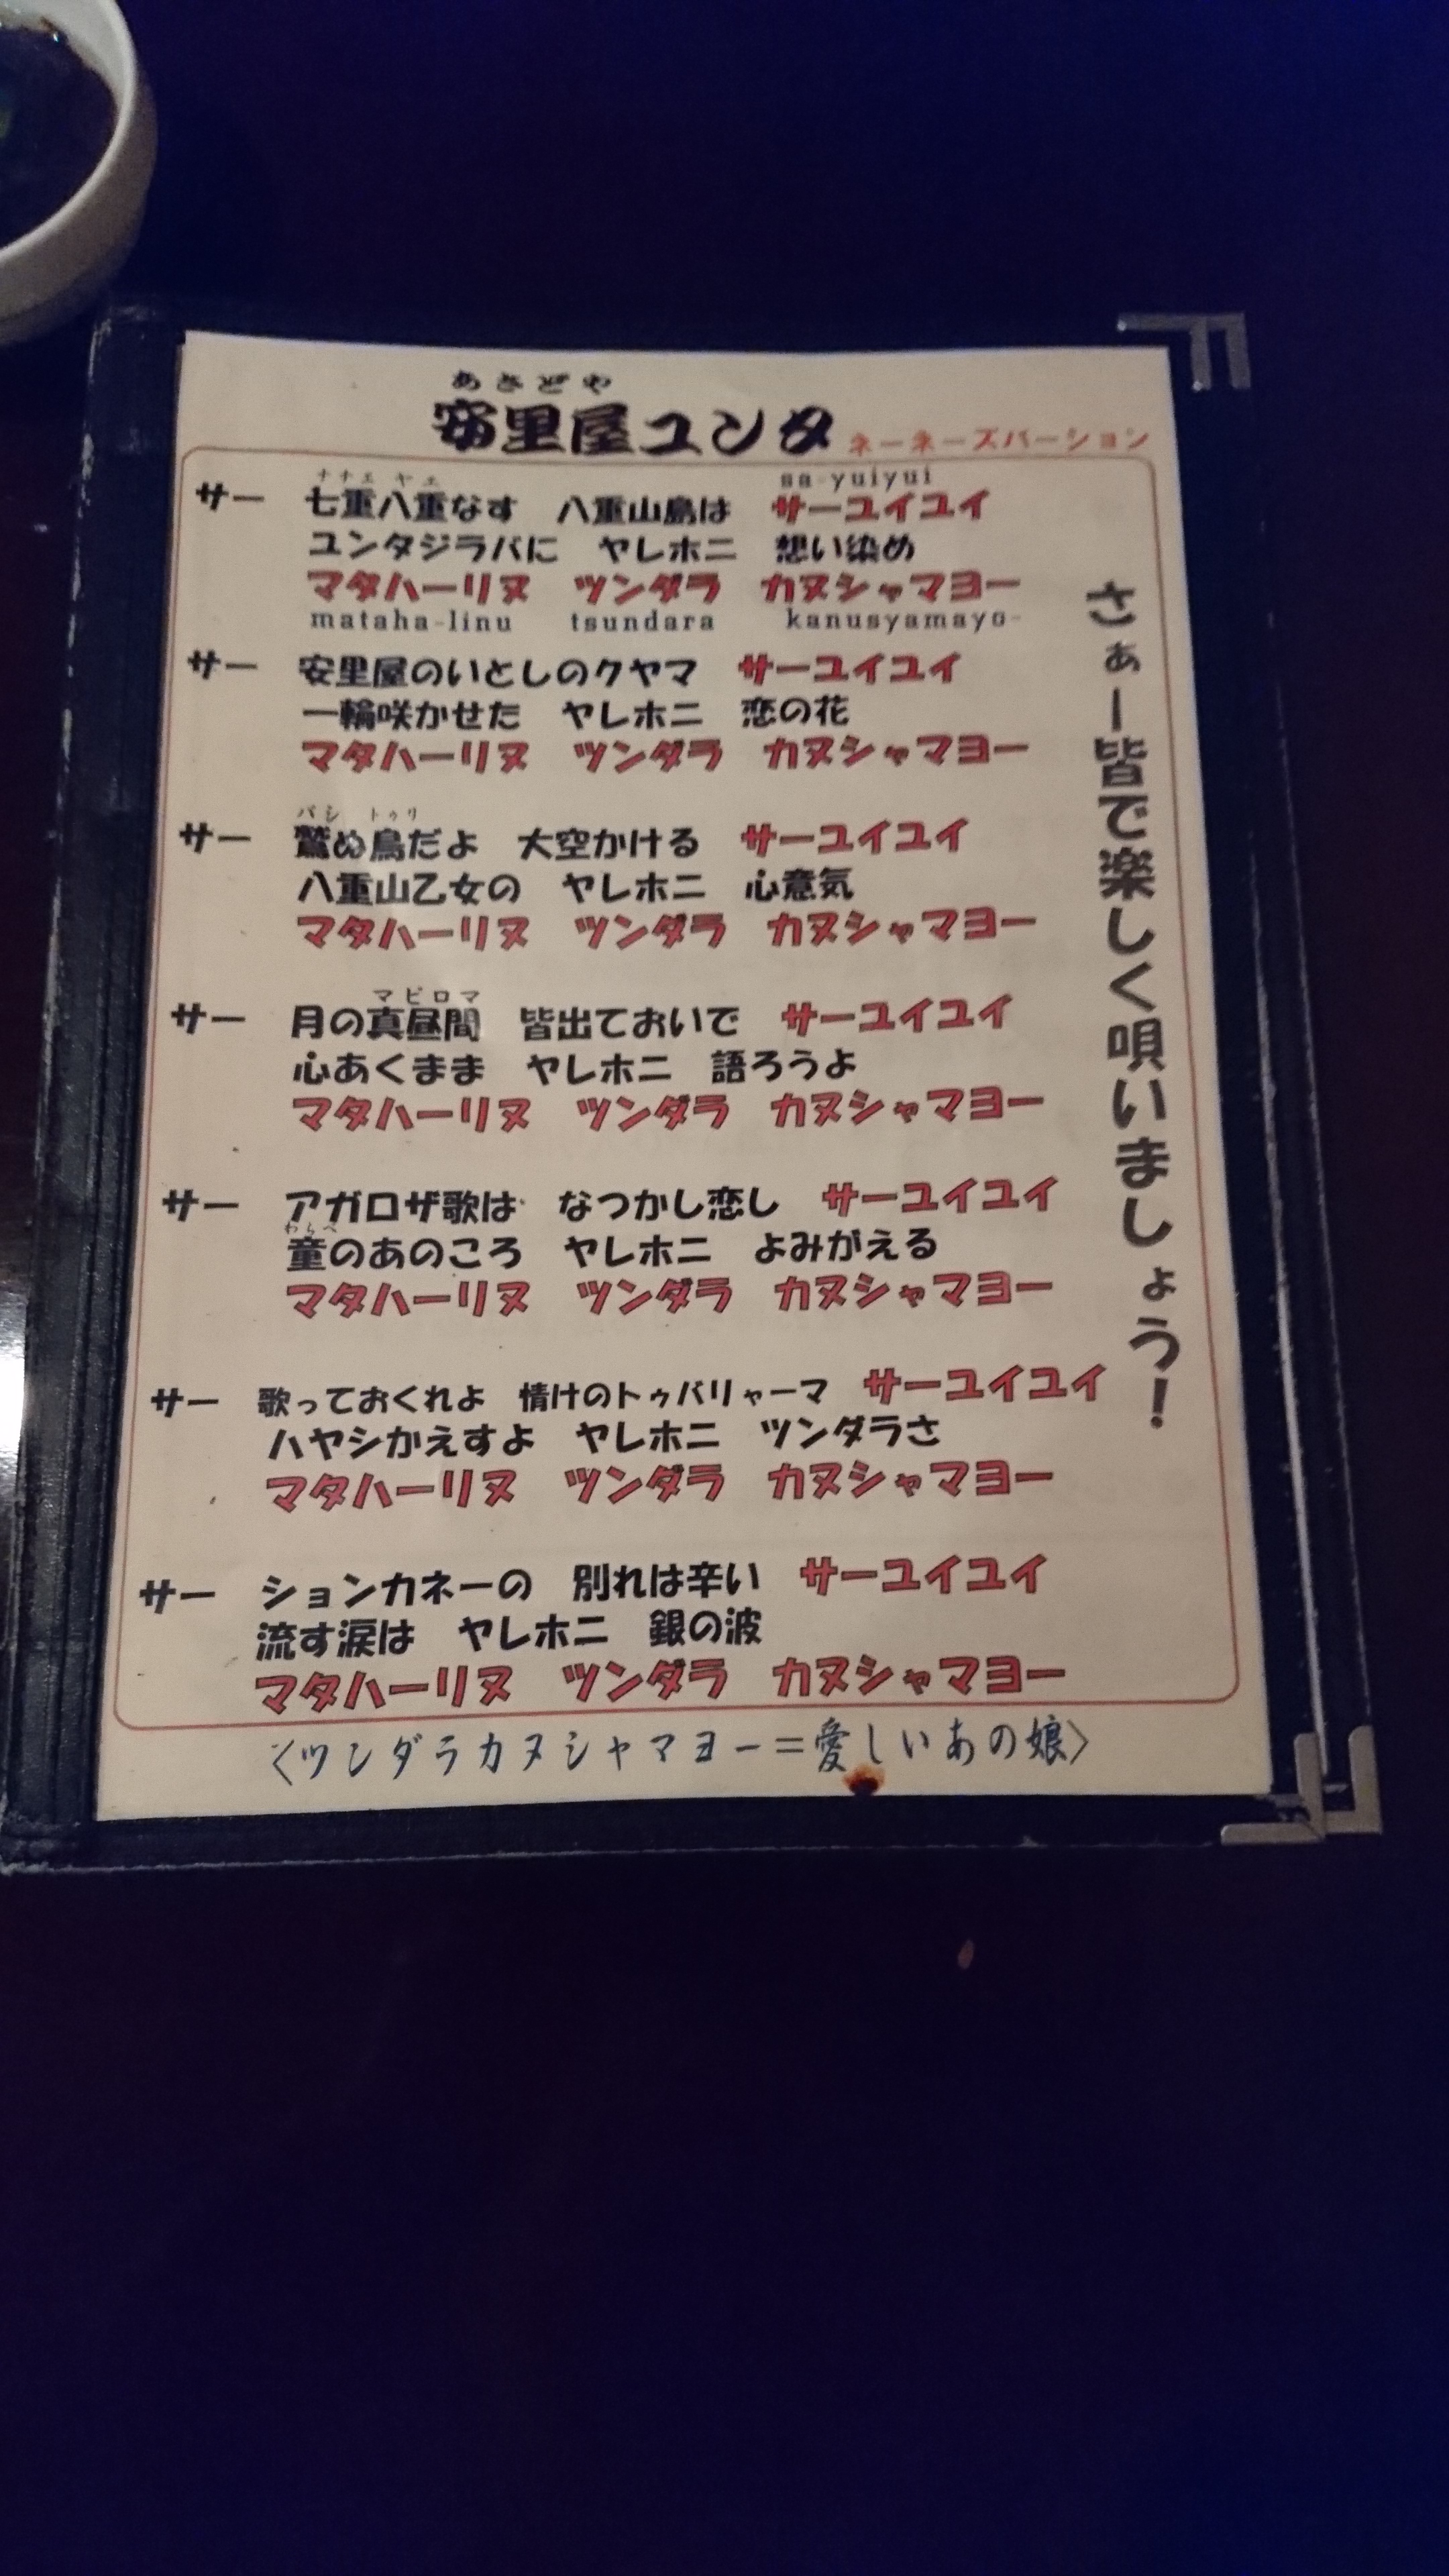 あさどや
安里屋ユンタ ネーネーズバーション
ナナエ ヤエ sa-yuiyui
サー 七重八重なす 八重山島は サーユイユイ
ユンタジラバに ヤレホニ 想い染め
マタハーリヌ ツンダラ カヌシャマヨー
mataha-linu tsundara kanusyamayo-
サー 安里屋のいとしのクヤマ サーユイユイ
一輪咲かせた ヤレホニ 恋の花
マタハーリヌ ツンダラ カヌシャマヨー
バシ トゥリ
サー 鷲ぬ鳥だよ 大空かける サーユイユイ
八重山乙女の ヤレホニ 心意気
マタハーリヌ ツンダラ カヌシャマヨー
マピロマ
サー 月の真昼間 皆出ておいで サーユイユイ
心あくまま ヤレホニ 語ろうよ
マタハーリヌ ツンダラ カヌシャマヨー
サー アガロザ歌は なつかし恋し サーユイユイ
わらべ
童のあのころ ヤレホニ よみがえる
マタハーリヌ ツンダラ カヌシャマヨー
サー 歌っておくれよ 情けのトゥバリャーマ サーユイユイ
ハヤシかえすよ ヤレホニ ツンダラさ
マタハーリヌ ツンダラ カヌシャマヨー
サー ションカネーの 別れは辛い サーユイユイ
流す涙は ヤレホニ 銀の波
マタハーリヌ ツンダラ カヌシャマヨー
〈ツンダラカヌシャマヨー=愛しいあの娘〉
さぁー皆で楽しく唄いましょう!